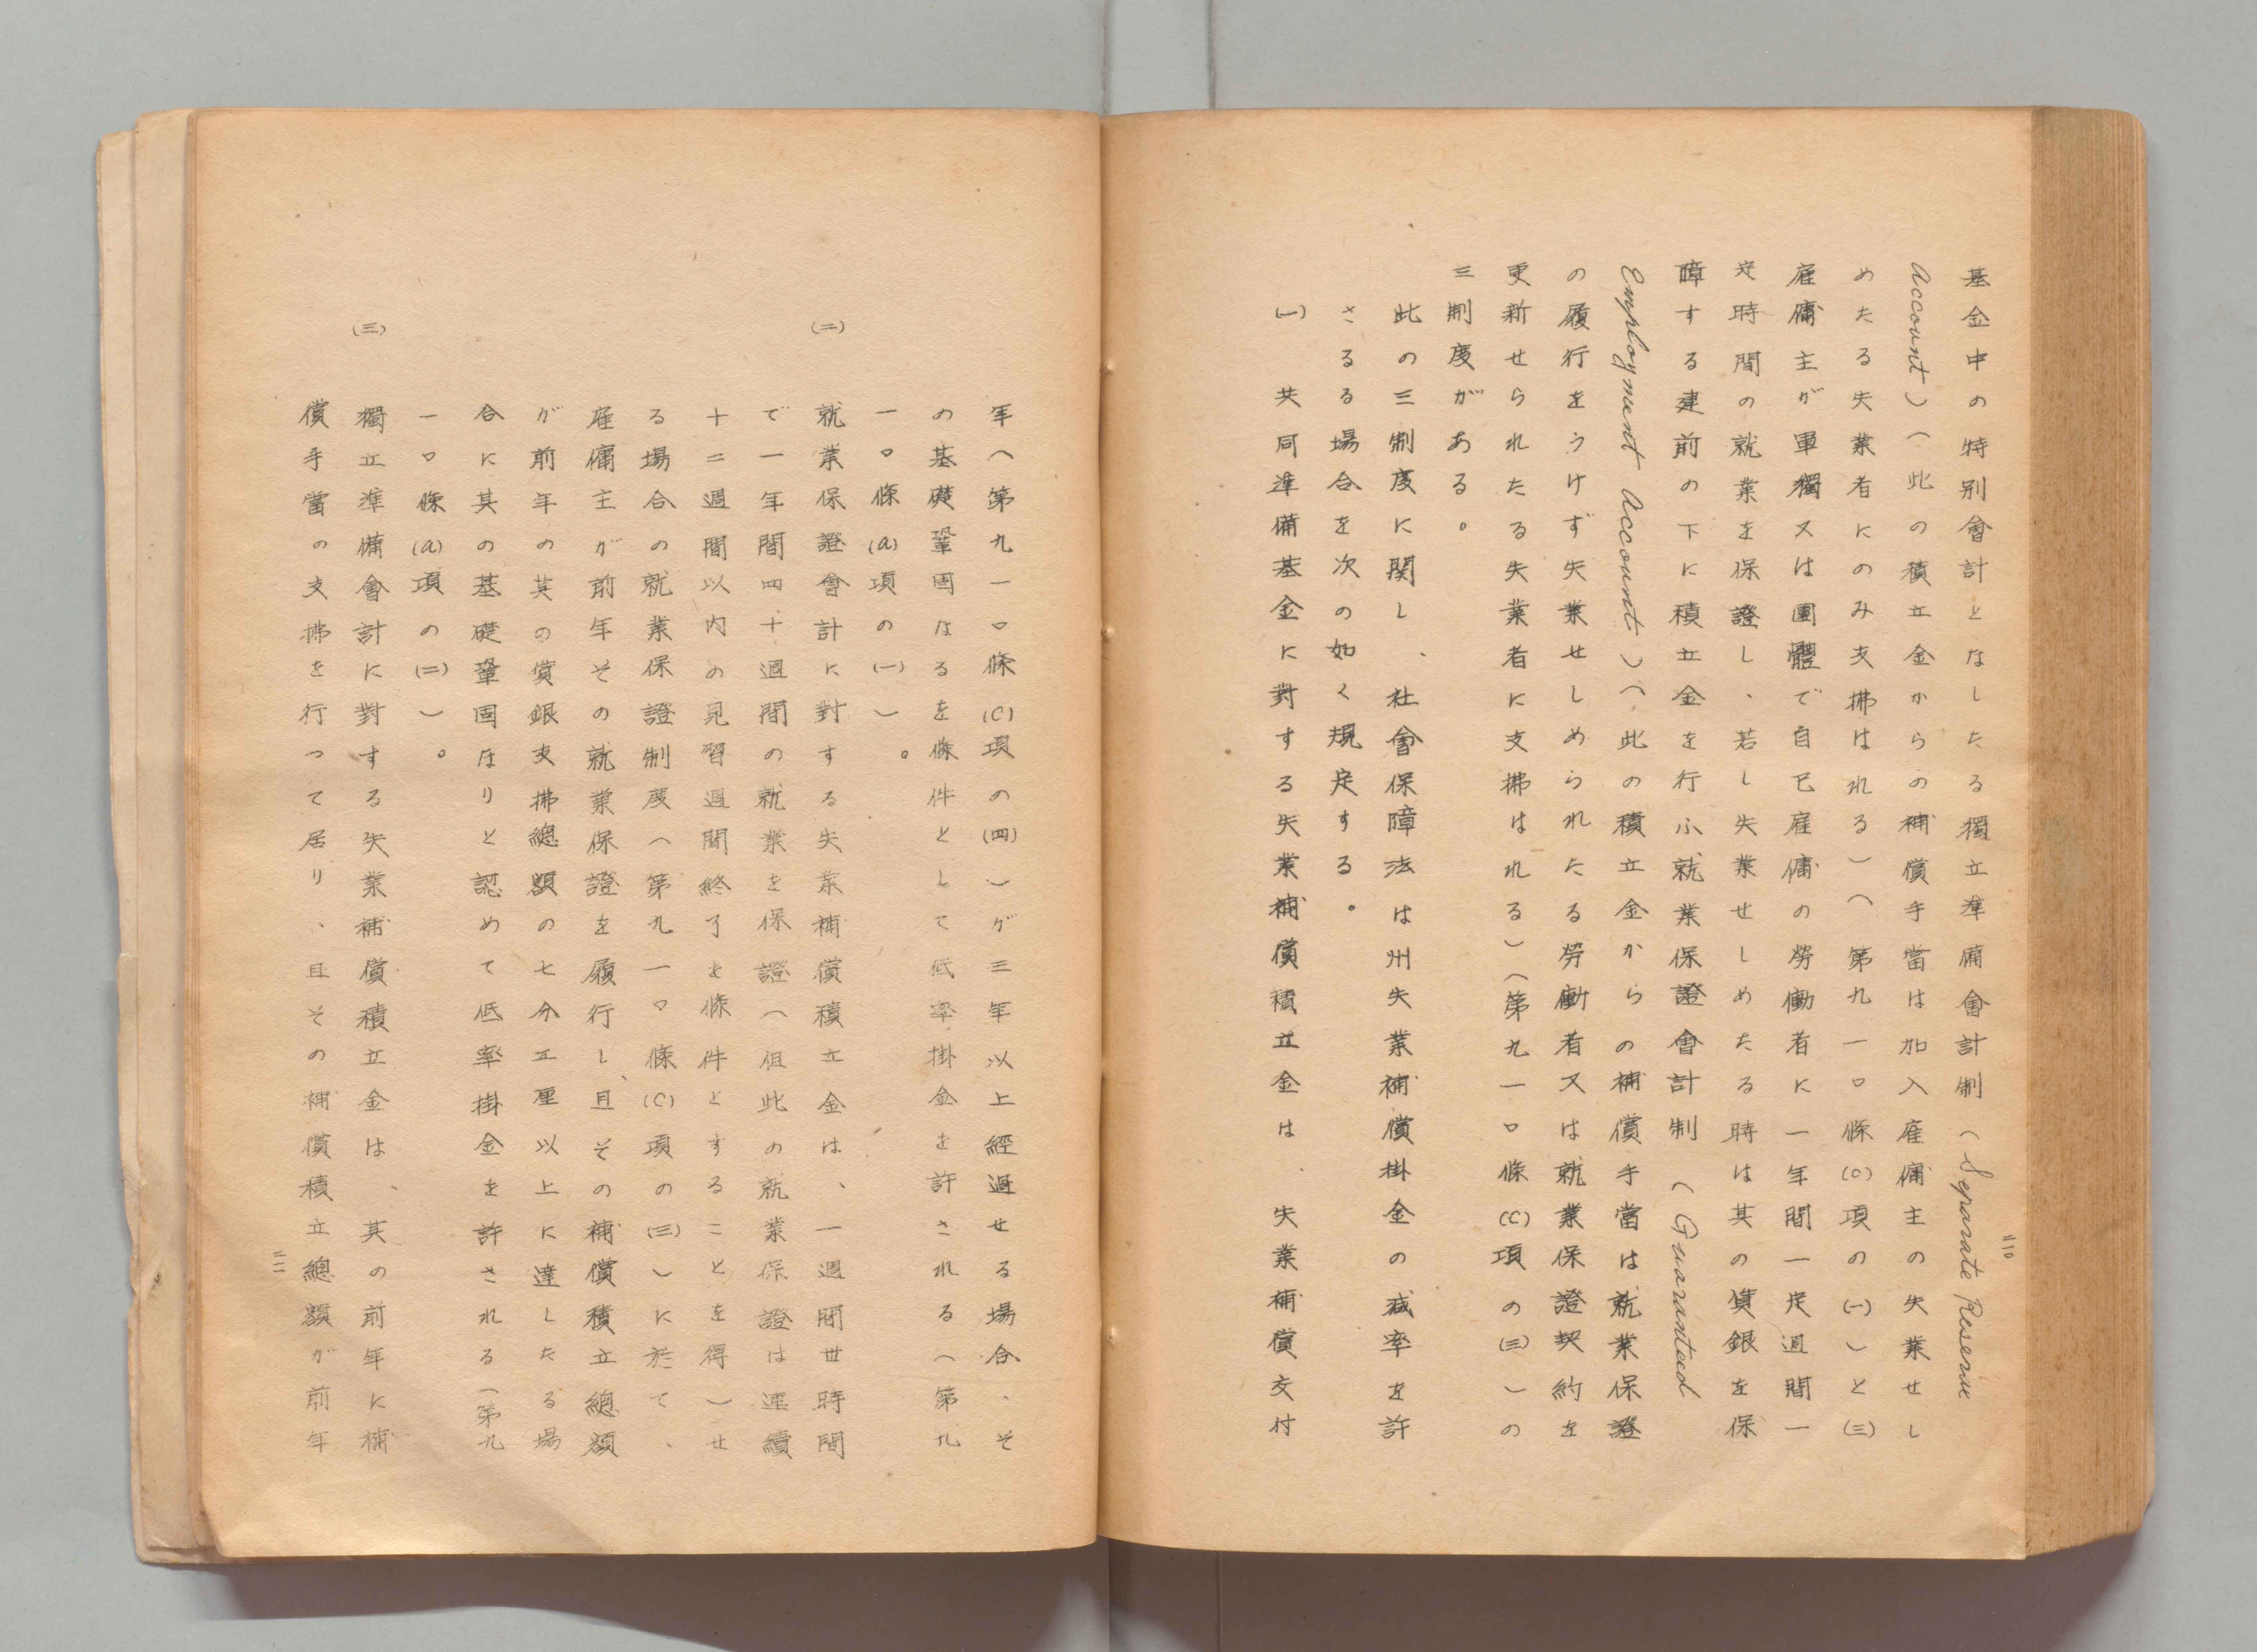 基金中の特別會計となしたる獨立準備會計制(Separate Reserve
Account)(此の積立金からの補償手當は加入雇傭主の失業せし
めたる失業者にのみ支拂はれる)(第九一〇條(C)項の(一))と(三)
雇傭主が單獨又は團體で自己雇傭の勞働者に一年間一定週間一
定時間の就業を保證し、若し失業せしめたる時は其の賃銀を保
障する建前の下に積立金を行ふ就業保證會計制(Guaranteed
Employment Account)(此の積立金からの補償手當は就業保證
の履行をうけず失業せしめられたる勞働者又は就業保證契約を
更新せられたる失業者に支拂はれる)(第九一〇條(C)項の(三))の
三制度がある。
此の三制度に関し、社會保障法は州失業補償掛金の減率を許
さるる場合を次の如く規定する。
(一) 共同準備基金に對する失業補償積立金は、失業補償交付
年(第九一〇條(C)項の(四))が三年以上經過せる場合、そ
の基礎鞏固なるを條件として低率掛金を許される(第九
一〇條(a)項の(一))。
(二) 就業保證會計に對する失業補償積立金は、一週間卅時間
で一年間四十週間の就業を保證(但此の就業保證は連續
十二週間以内の見習週間終了を條件とすることを得)せ
る場合の就業保證制度(第九一〇條(C)項の(三))に於て、
雇傭主が前年その就業保證を履行し、且その補償積立總額
が前年の其の賃銀支拂總額の七分五厘以上に達したる場
合に其の基礎鞏固なりと認めて低率掛金を許される(第九
一〇條(a)項の(二))。
(三) 獨立準備會計に對する失業補償積立金は、其の前年に補
償手當の支拂を行つて居り、且その補償積立總額が前年
二一